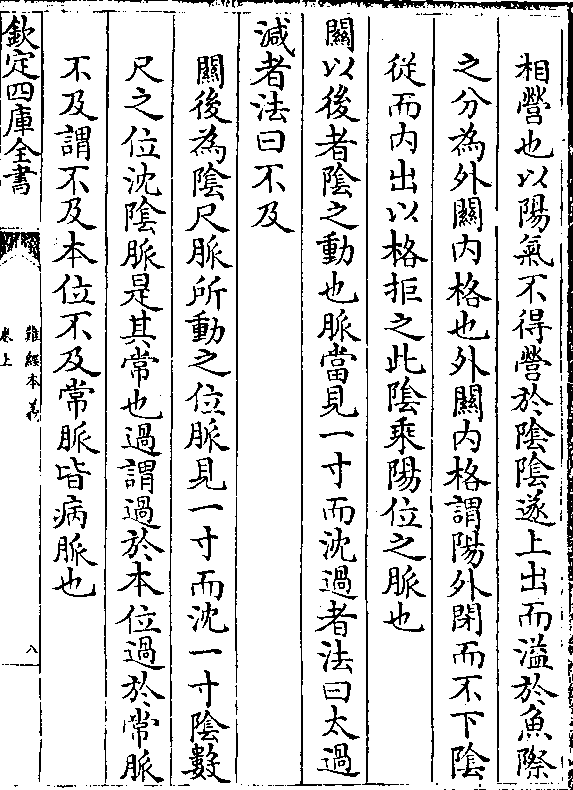 相營也以陽氣不得營於陰陰遂上出而溢於魚際
之分為外關内格也外關内格謂陽外閉而不下陰
從而内出以格拒之此陰乘陽位之脈也
關以後者陰之動也脈當見一寸而沈過者法曰太過
減者法曰不及
關後為陰尺脈所動之位脈見一寸而沈一寸陰數
尺之位沈陰脈是其常也過謂過於本位過於常脈
不及謂不及本位不及常脈皆病脈也
欽定四庫全書
難經本義
卷上
八